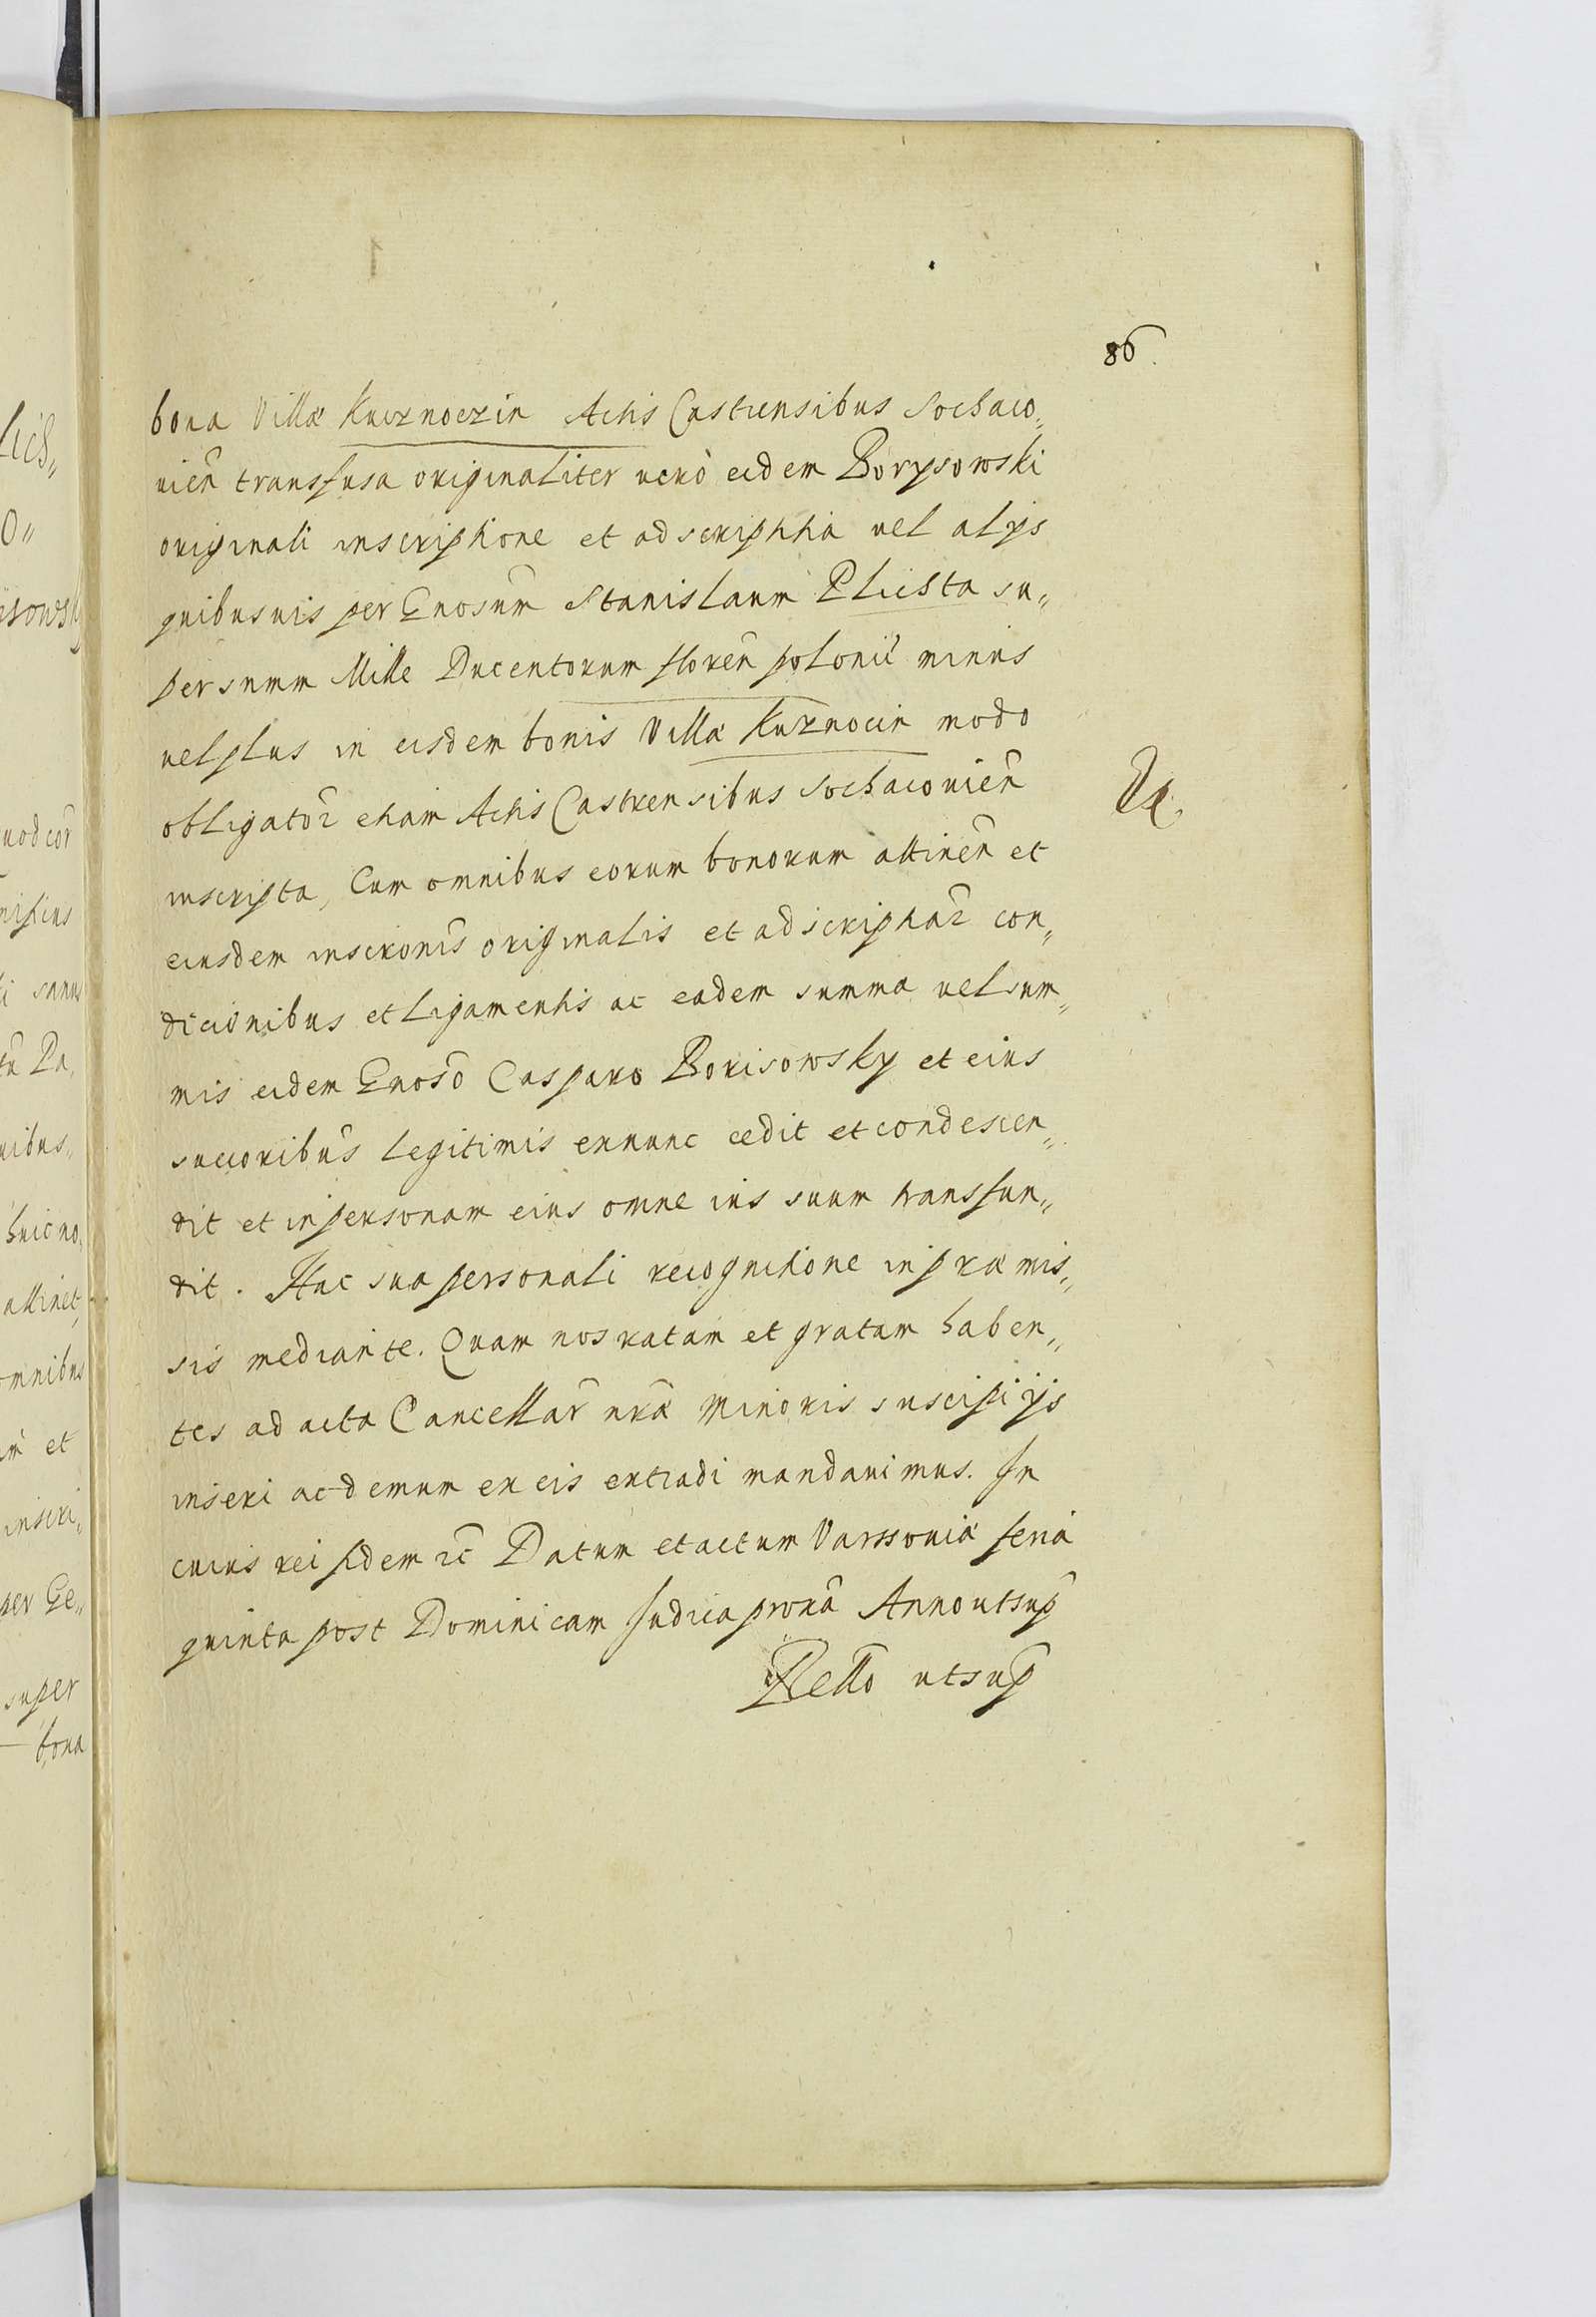 86
bona Villæ Kurznoczin Actis Castrensibus Sochaco„
uień transfusa originaliter uerò eidem Borysowski
originali inscriptione et adscriptitia uel alijs
quibusuis per Gnosum Stanislaum Plichta su„
per summ Mille Ducentorum floreń polonic minus
uel plus in eisdem bonis Villæ Kurznocin modo
obligator etiam Actis Castrensibus Sochacouień
inscripta, Cum omnibus eorum bonorum attineń et
eiusdem inscronis originalis et adscriptiar con„
dicionibus et Ligamentis ac eadem summa uel sum„
mis eidem Gnoso Casparo Borisowsky et eius
succoribus Legitimis exnunc cedit et condescen„
dit et in personam eius omne ius suum transfun„
dit. Hac sua personali recognitione in præmis„
sis mediante. Quam nos ratam et gratam haben„
tes ad acta Cancellar nræ Minoris suscipi ijs
inseri ac demum ex eis extradi mandauimus. In
cuius rei fidem etc Datum et actum Varssouiæ feria
quinta post Dominicam Judica proxa Anno utsup
Rello utsup
Lich„
o„
sowsky
uod cor
sanus
uibus„
huic no„
attinet,
omnibus
et
inscri„
per Ge„
super
bona